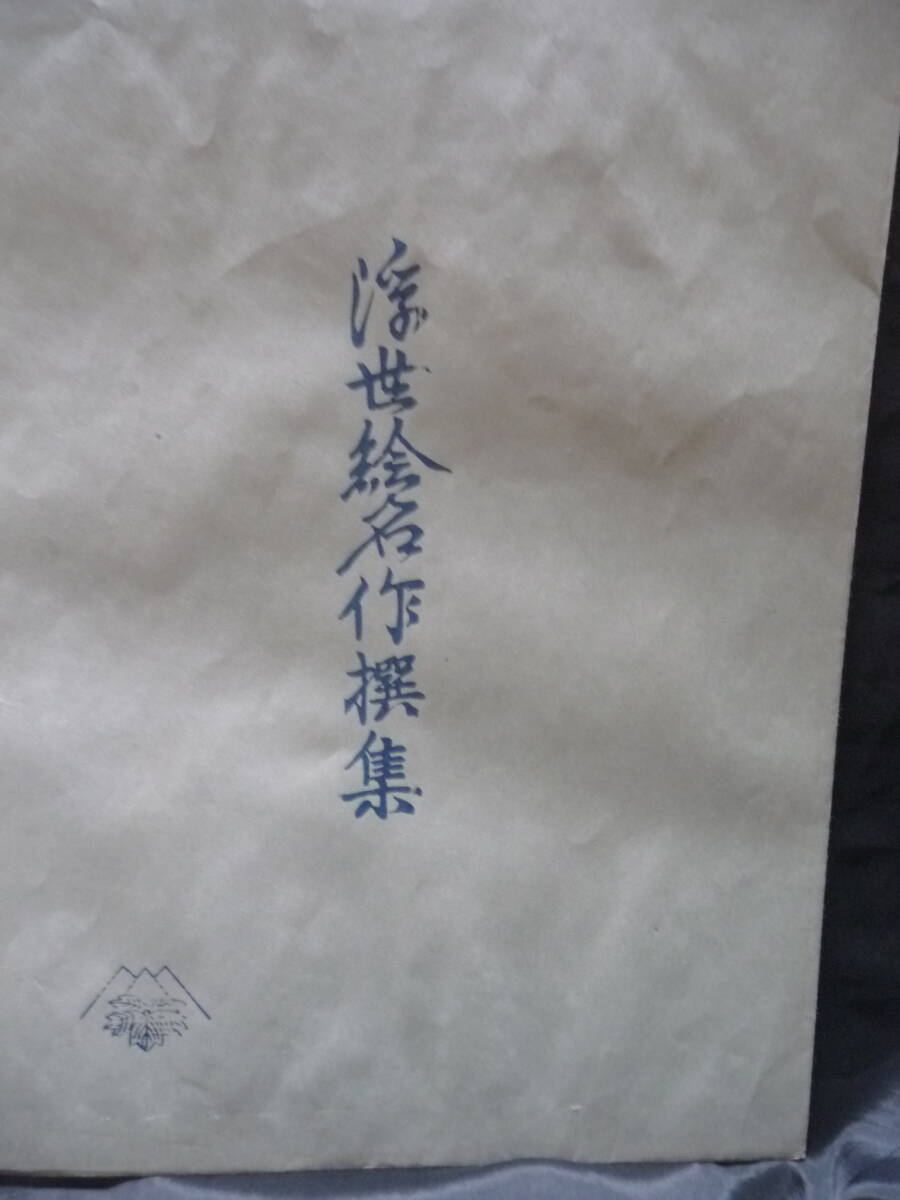 浮世絵名作撰集